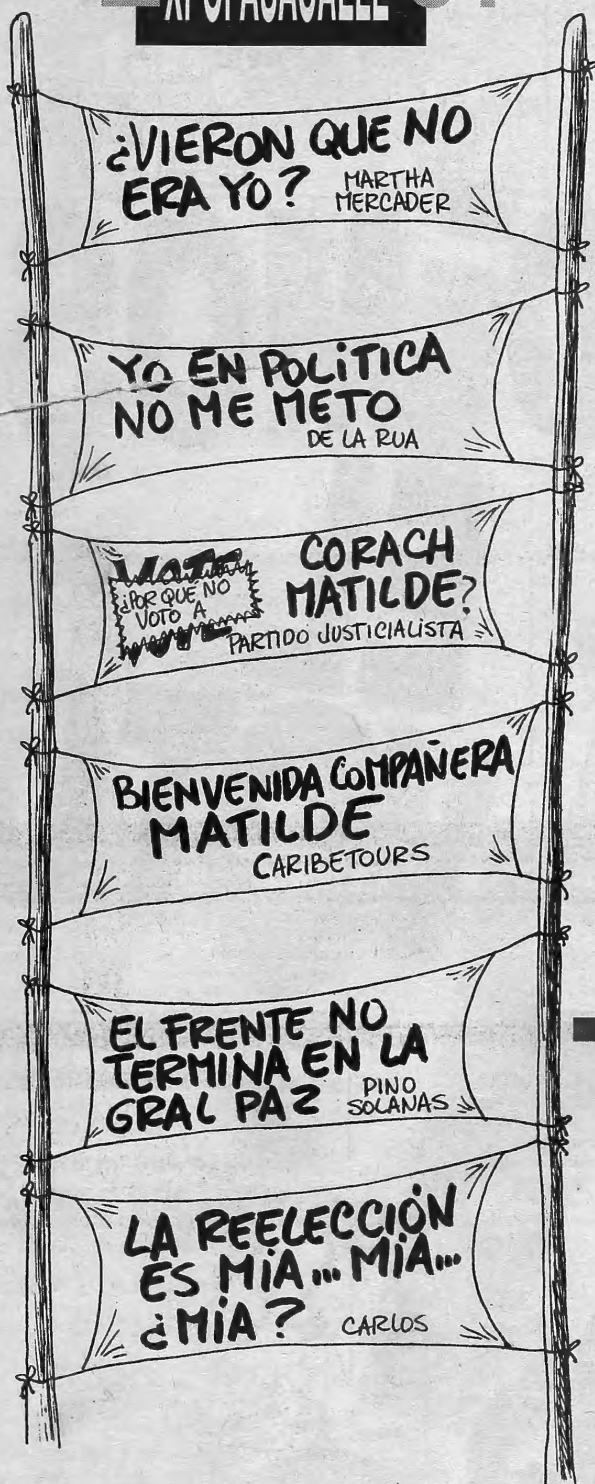 ¿VIERON QUE NO
ERA YO?
MARTHA
MERCADER
YO EN POLITICA
NO ME METO
DE LA RUA
VOTE
¿POR QUE NO
VOTO A
CORACH
MATILDE?
PARTIDO JUSTICIALISTA
BIENVENIDA COMPAÑERA
MATILDE
CARIBETOURS
EL FRENTE NO
TERMINA EN LA
GRAL PAZ
PINO
SOLANAS
LA REELECCIÓN
ES MIA... MIA...
¿MIA?
CARLOS